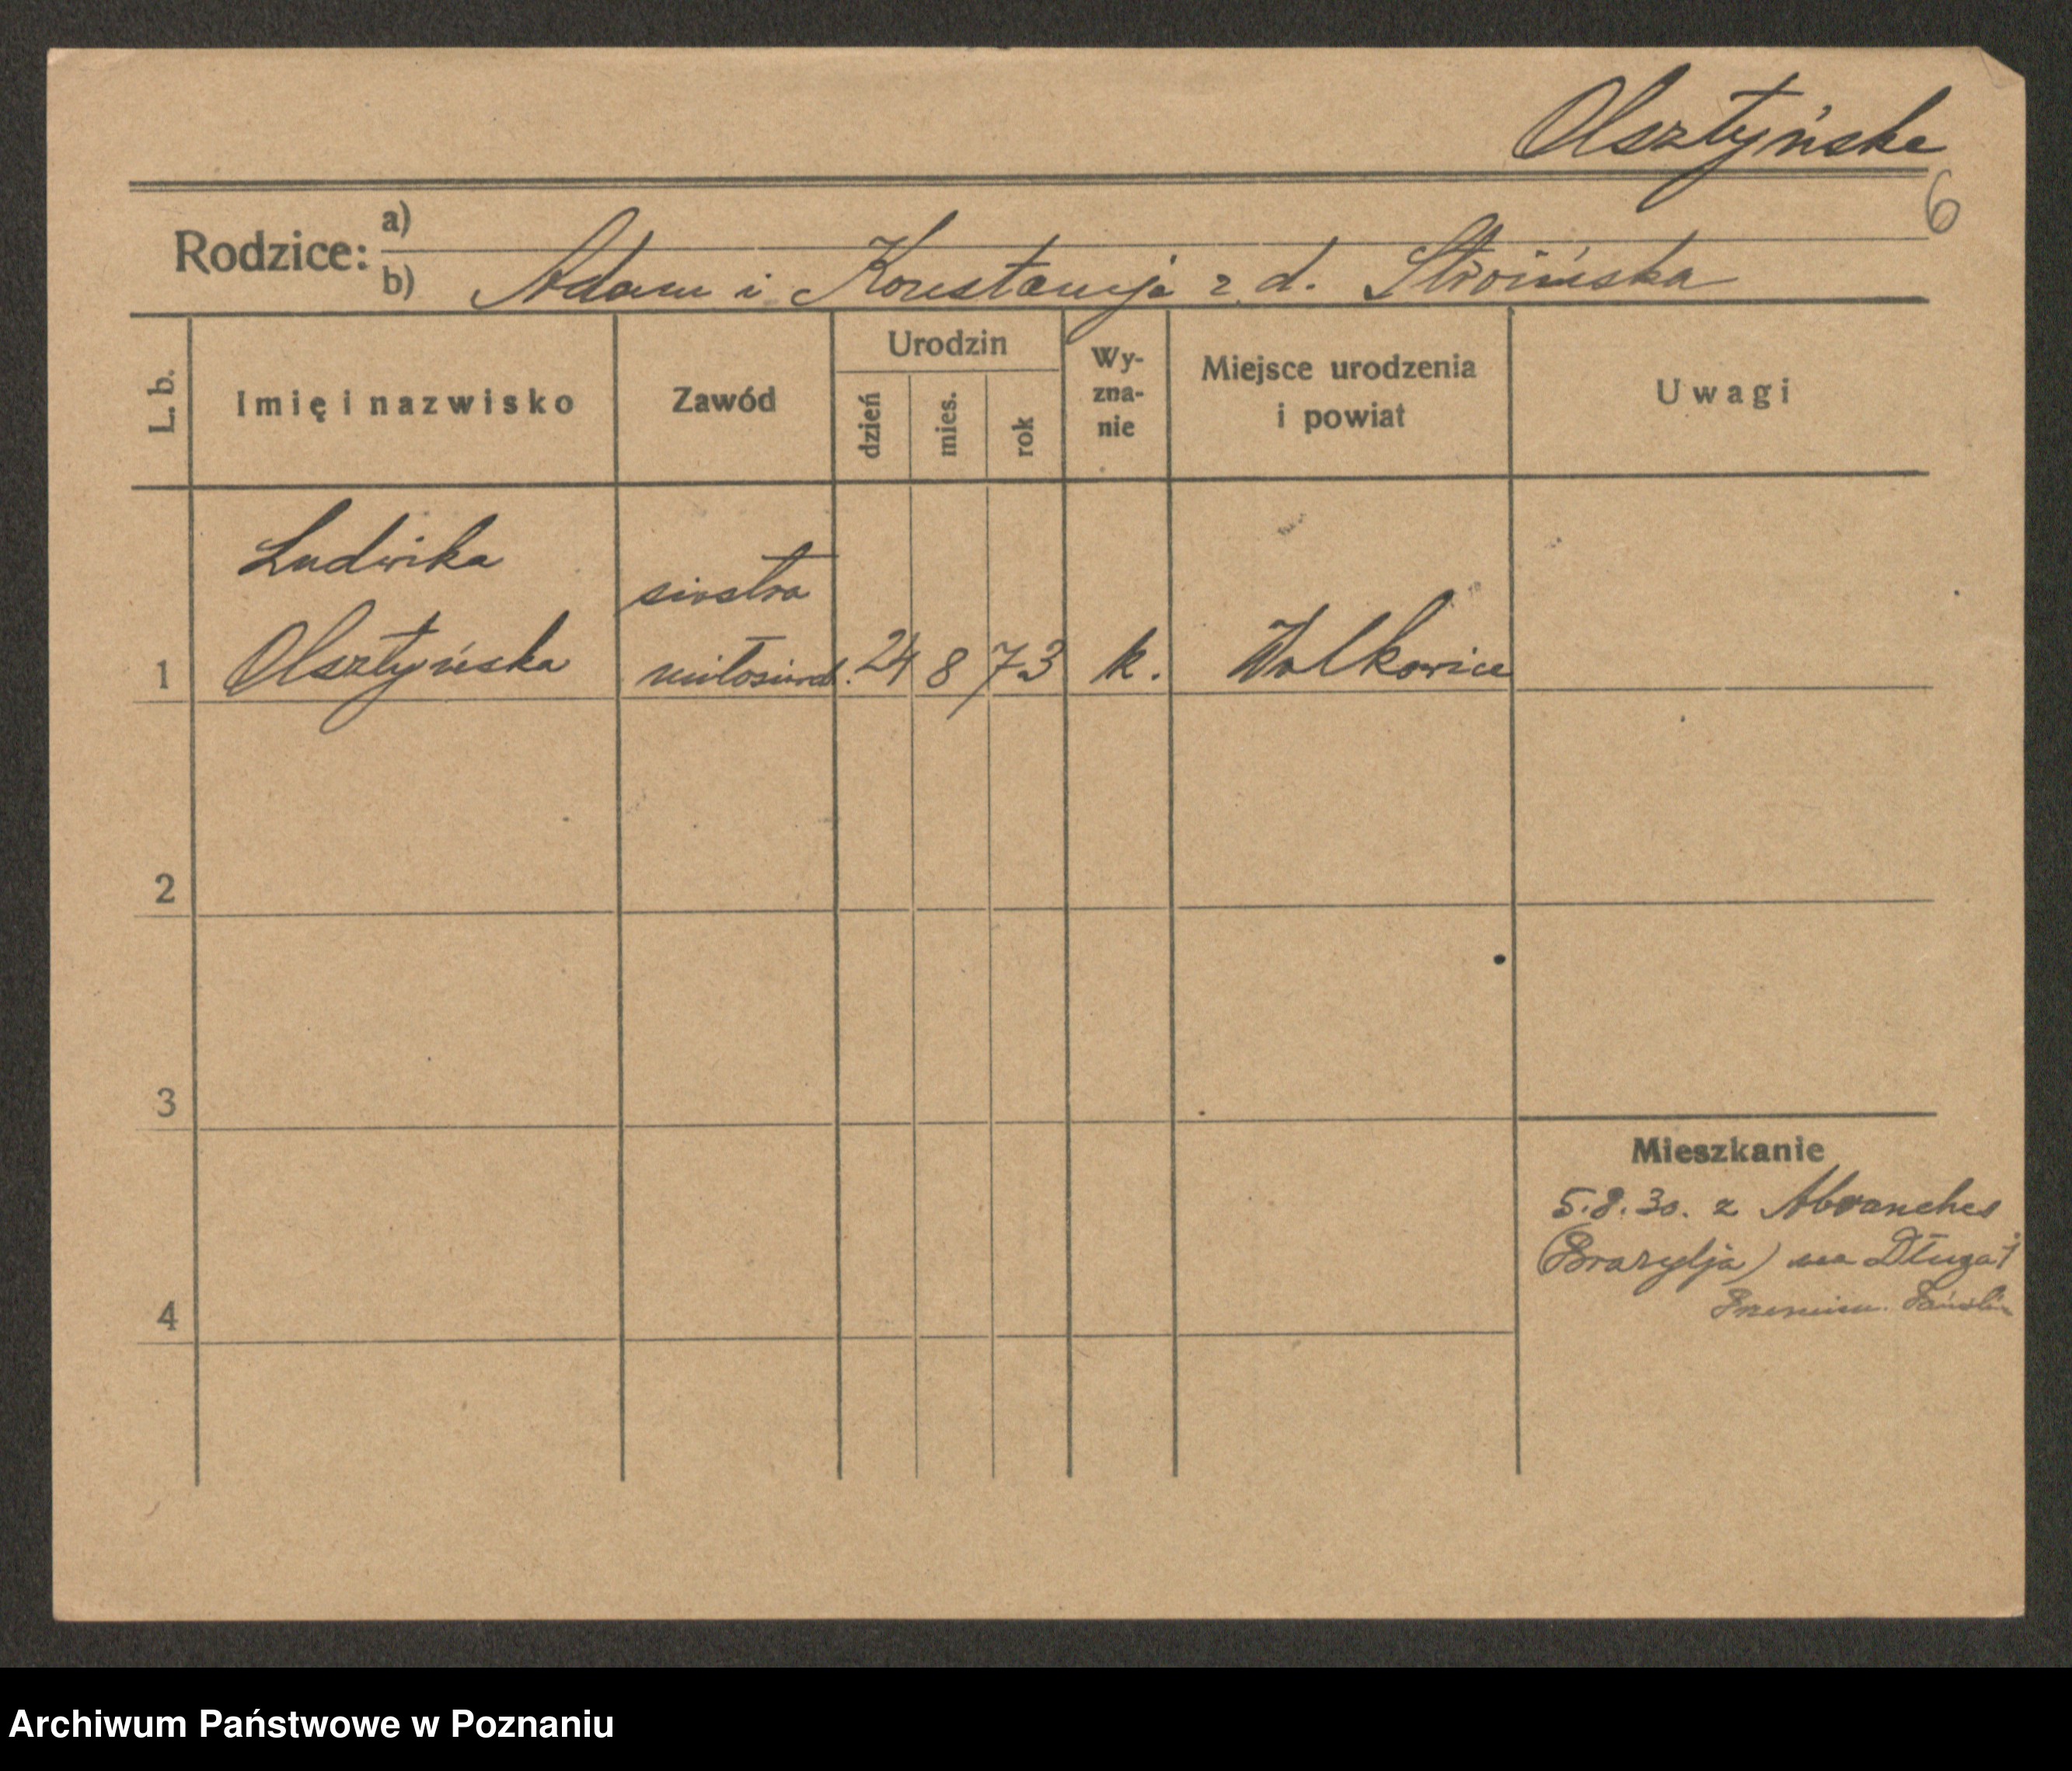 Olsztyńska
6
Rodzice: a)
b) Adam i Konstancja z d. Stroińska
L. b.
Imię i nazwisko
Zawód
Urodzin
dzień
mies.
rok
Wy-
zna-
nie
Miejsce urodzenia
i powiat
Uwagi
Ludwika
siostra
1 Olsztyńska miłosierd. 24 8 73 k. Wolkowice
2
3
Mieszkanie
5.8.30. z Abranches
(Brazylja) na Długa 1
4
Archiwum Państwowe w Poznaniu